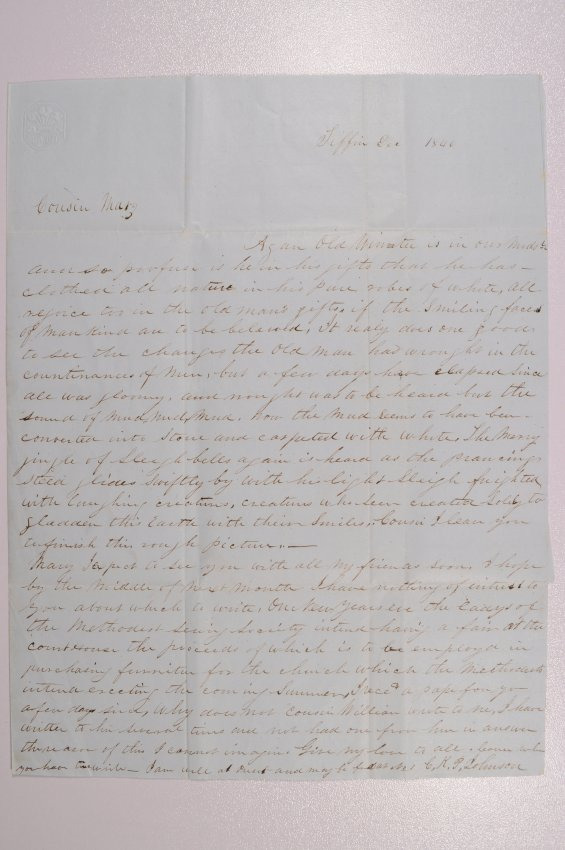 Tiffin Dec 1846
Cousin Mary
Again Old Winter is in our midst
and so profuse is he in his gifts that he has
clothed all nature in his pure robes of white, all
rejoice too in the old man's gifts, if the Smiling faces
of Mankind are to be believed, It realy does one good
to see the changes the Old Man has wrought in the
countinances of Men, but a few days have elapsed since
all was gloomy, and nought was to be heard but the
sound of Mud, Mud, Mud. now the Mud seems to have been
converted into Stone and carpeted with white. The Merry
jingle of Sleigh bells again is heard as the prancing
Steed glides Swiftly by with his light Sleigh freighted
with laughing creatures, creatures who seem created Solely to
gladden this Earth with their Smiles, Cousin I leave you
to finish this rough picture. —
Mary I expect to see you with all my friends soon, I hope
by the Middle of Next Month I have nothing of interest to
you about which to write, One New Years eve the Ladys of
the Methodist Sewing Society intend having a fair at the
courthouse the proceeds of which is to be employed in
purchasing furniture for the church which the Methodists
intend erecting the coming Summer, I recd a paper from you
a few days since, Why does not Cousin William write to me, I have
written to him several times and not had one from him in answer
the reason of this I cannot imagine Give my love to all
you have — I am well at and may C. K. P. Johnson